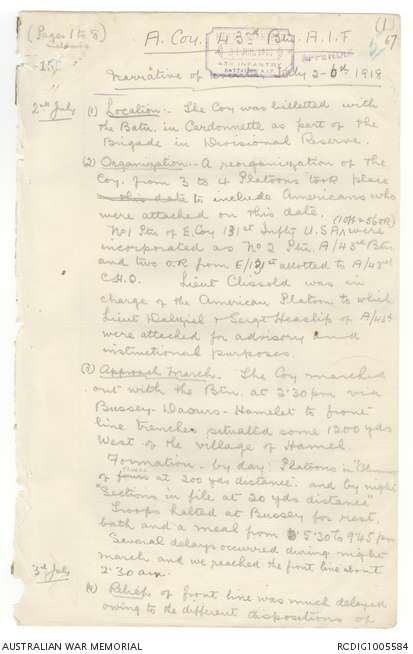 (1)
67
(Pages 1 to 8)
A. Coy. 43rd Btn. A.I.F.
4TH INFANTRY
APPENDIX
Narrative of July 2-6th 1918
2nd July
(1) Location:- The Coy was billeted with
the Batn. in Cardonnette as part of the
Brigade in Divisional Reserve.
(2) Organization:- A reorganization of the
Coy. from 3 to 4 Platoons took place
on this date to include Americans who
were attached on this date.
No 1 Ptn. of E. Coy 131st Inftry U.S.A. were (1 Off & 56 OR)
incorporated as No 2 Ptn. A/43rd Btn
and two O.R from E/131st allotted to A/43rd
C.H.Q. Lieut Clissold was in
charge of the American Platoon to which
Lieut Dalziel & Sergt Heaslip of A/43rd
were attached for advisory and
instructional purposes.
(3) Approach March. The Coy marched
out with the Btn. at 2.30 pm via
Bussey-Daours-Hamelet to front
line trenches situated some 1200 yds
West of the village of Hamel.
Formation - by day: Platoons in "Column
of fours at 200 yds distance" and by night
"Sections in file at 20 yds distance"
Troops halted at Bussey for rest,
bath and a meal from 5.30 to 9.45 pm
Several delays occurred during night
march and we reached the front line about
2.30 am.
3rd July
(4) Relief of front line was much delayed
owing to the different dispositions of
AUSTRALIAN WAR MEMORIAL
RCDIG1005584